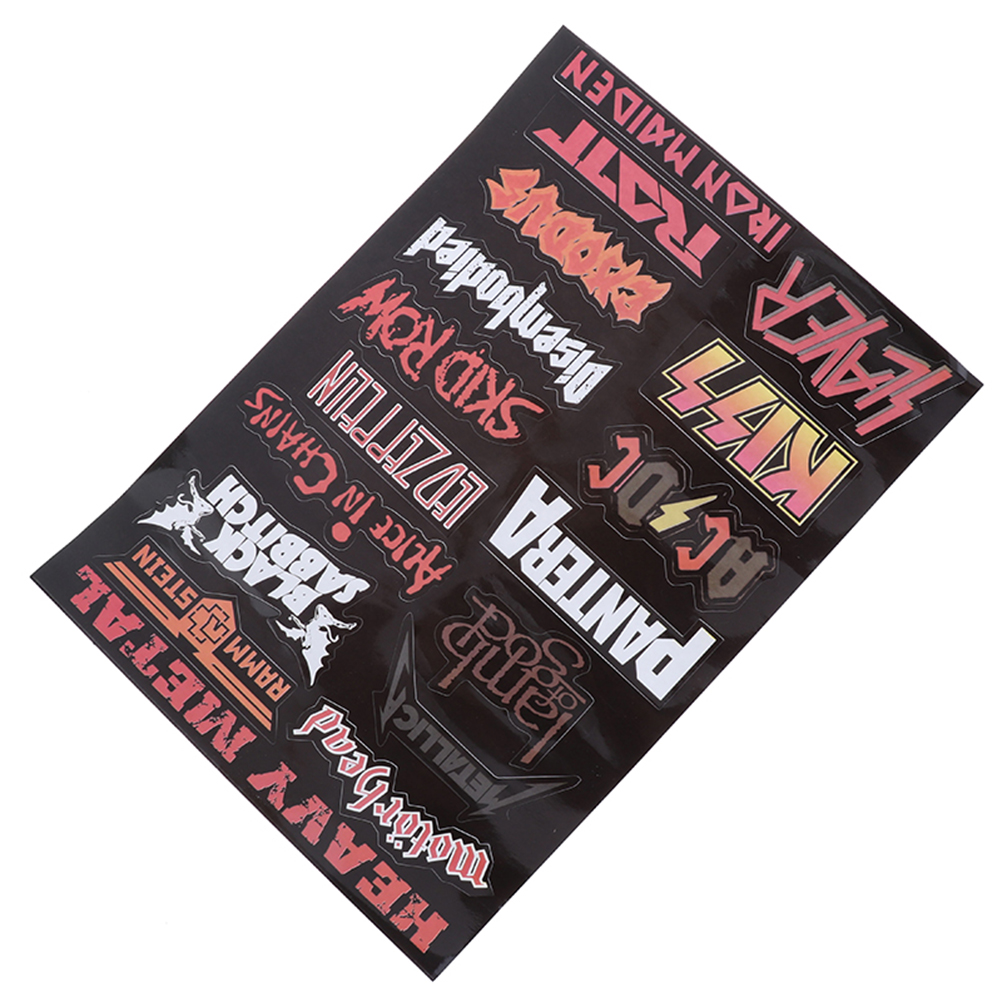 HEAVY METAL
motörhead
RAMM STEIN
METALLICA
BLACK
SABBITCH
lamb
OF god
ALICE IN CHAINS
PANTERA
LED ZEPPELIN
AC DC
SKID ROW
KISS
Disembodied
EXODUS
SLAYER
RATT
IRON MAIDEN